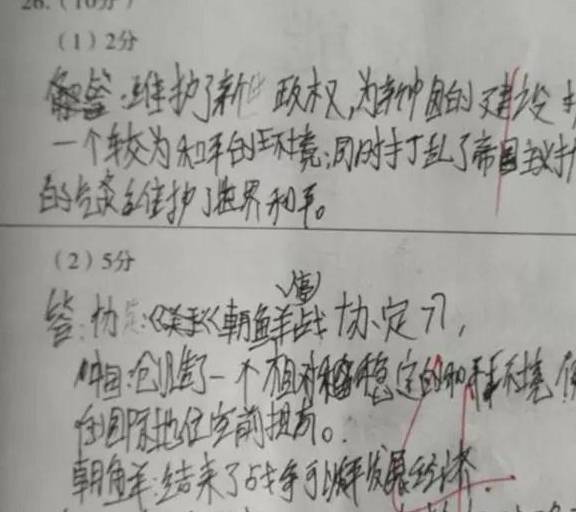 26.(10分)
(1)2分
答:维护了新 政权,为新中国的建设
一个较为和平的环境;同时打乱了帝国主义
的 维护了世界和平。
(2)5分
答:协定:《关于《朝鲜停战协定》》,
中国:创造了一个相对稳定的和平环境
国际地位空前提高。
朝鲜:结束了战争可以和平发展经济.